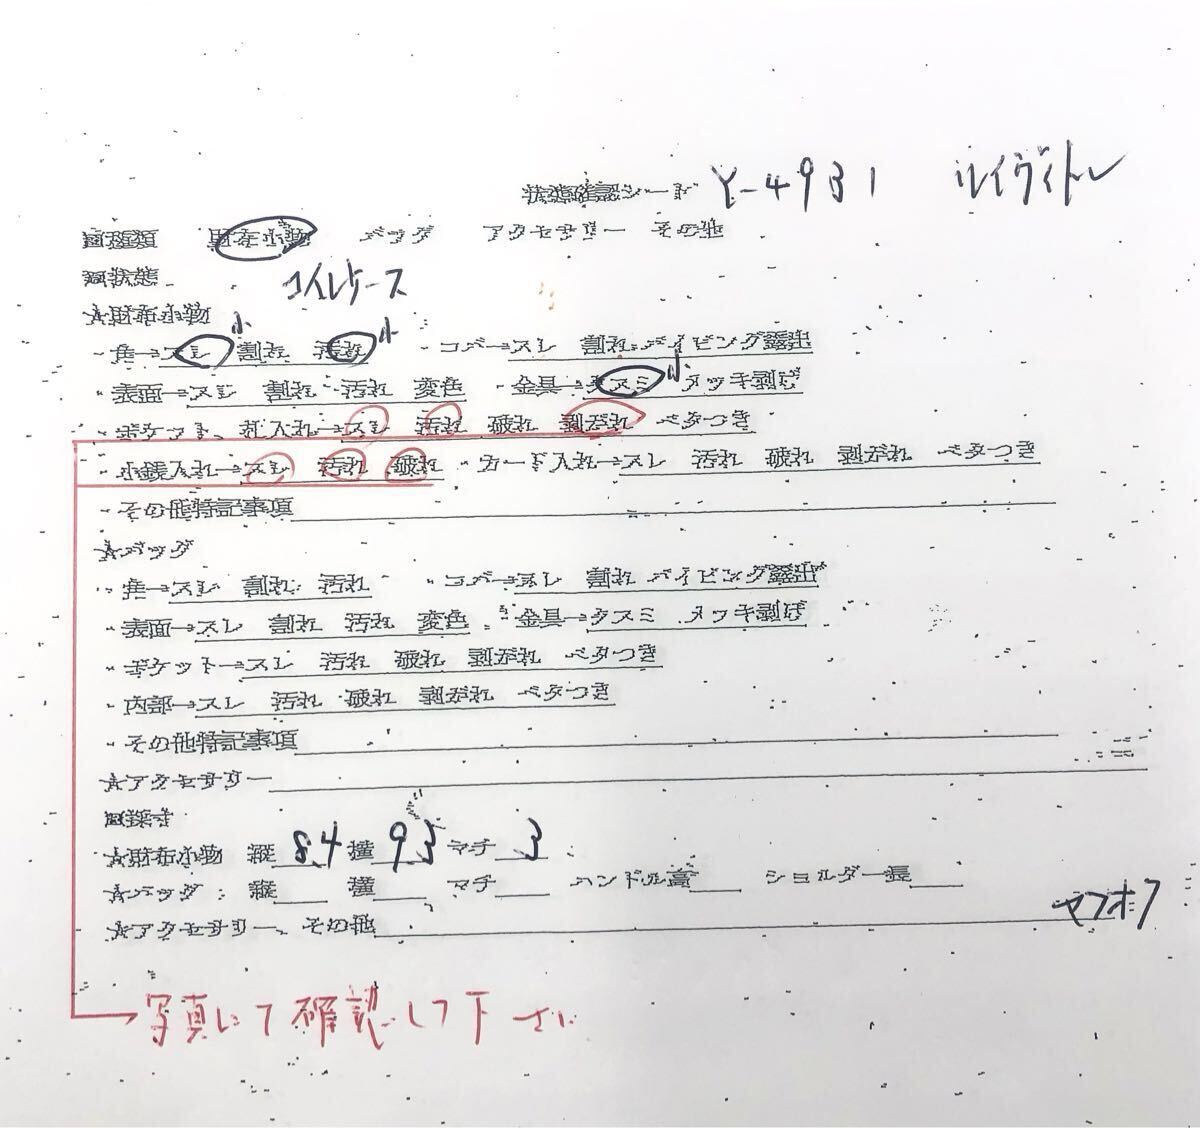 状態確認シート Y-4931 ルイヴィトン
■種類 財布小物 バッグ アクセサリー その他
■状態 コインケース
☆財布小物
・角→スレ 小 割れ 汚れ 小 ・コバ→スレ 割れ パイピング露出
・表面→スレ 割れ 汚れ 変色 ・金具→クスミ 小 メッキ剥げ
・ポケット、札入れ→スレ 汚れ 破れ 剥がれ ベタつき
・小銭入れ→スレ 汚れ 破れ ・カード入れ→スレ 汚れ 破れ 剥がれ ベタつき
・その他特記事項
☆バッグ
・角→スレ 割れ 汚れ ・コバ→スレ 割れ パイピング露出
・表面→スレ 割れ 汚れ 変色 ・金具→クスミ メッキ剥げ
・ポケット→スレ 汚れ 破れ 剥がれ ベタつき
・内部→スレ 汚れ 破れ 剥がれ ベタつき
・その他特記事項
☆アクセサリー
■採寸
☆財布小物 縦 8.4 横 9.3 マチ 3
☆バッグ 縦 横 マチ ハンドル高 ショルダー長
☆アクセサリー、その他
ヤフオフ
→写真にて確認して下さい